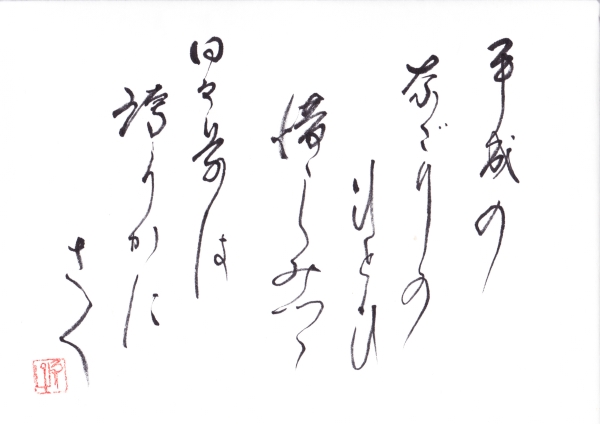 平成の
奈ごりの
ひとひ
惜しみつゝ
日々草は
誇りかに
さく